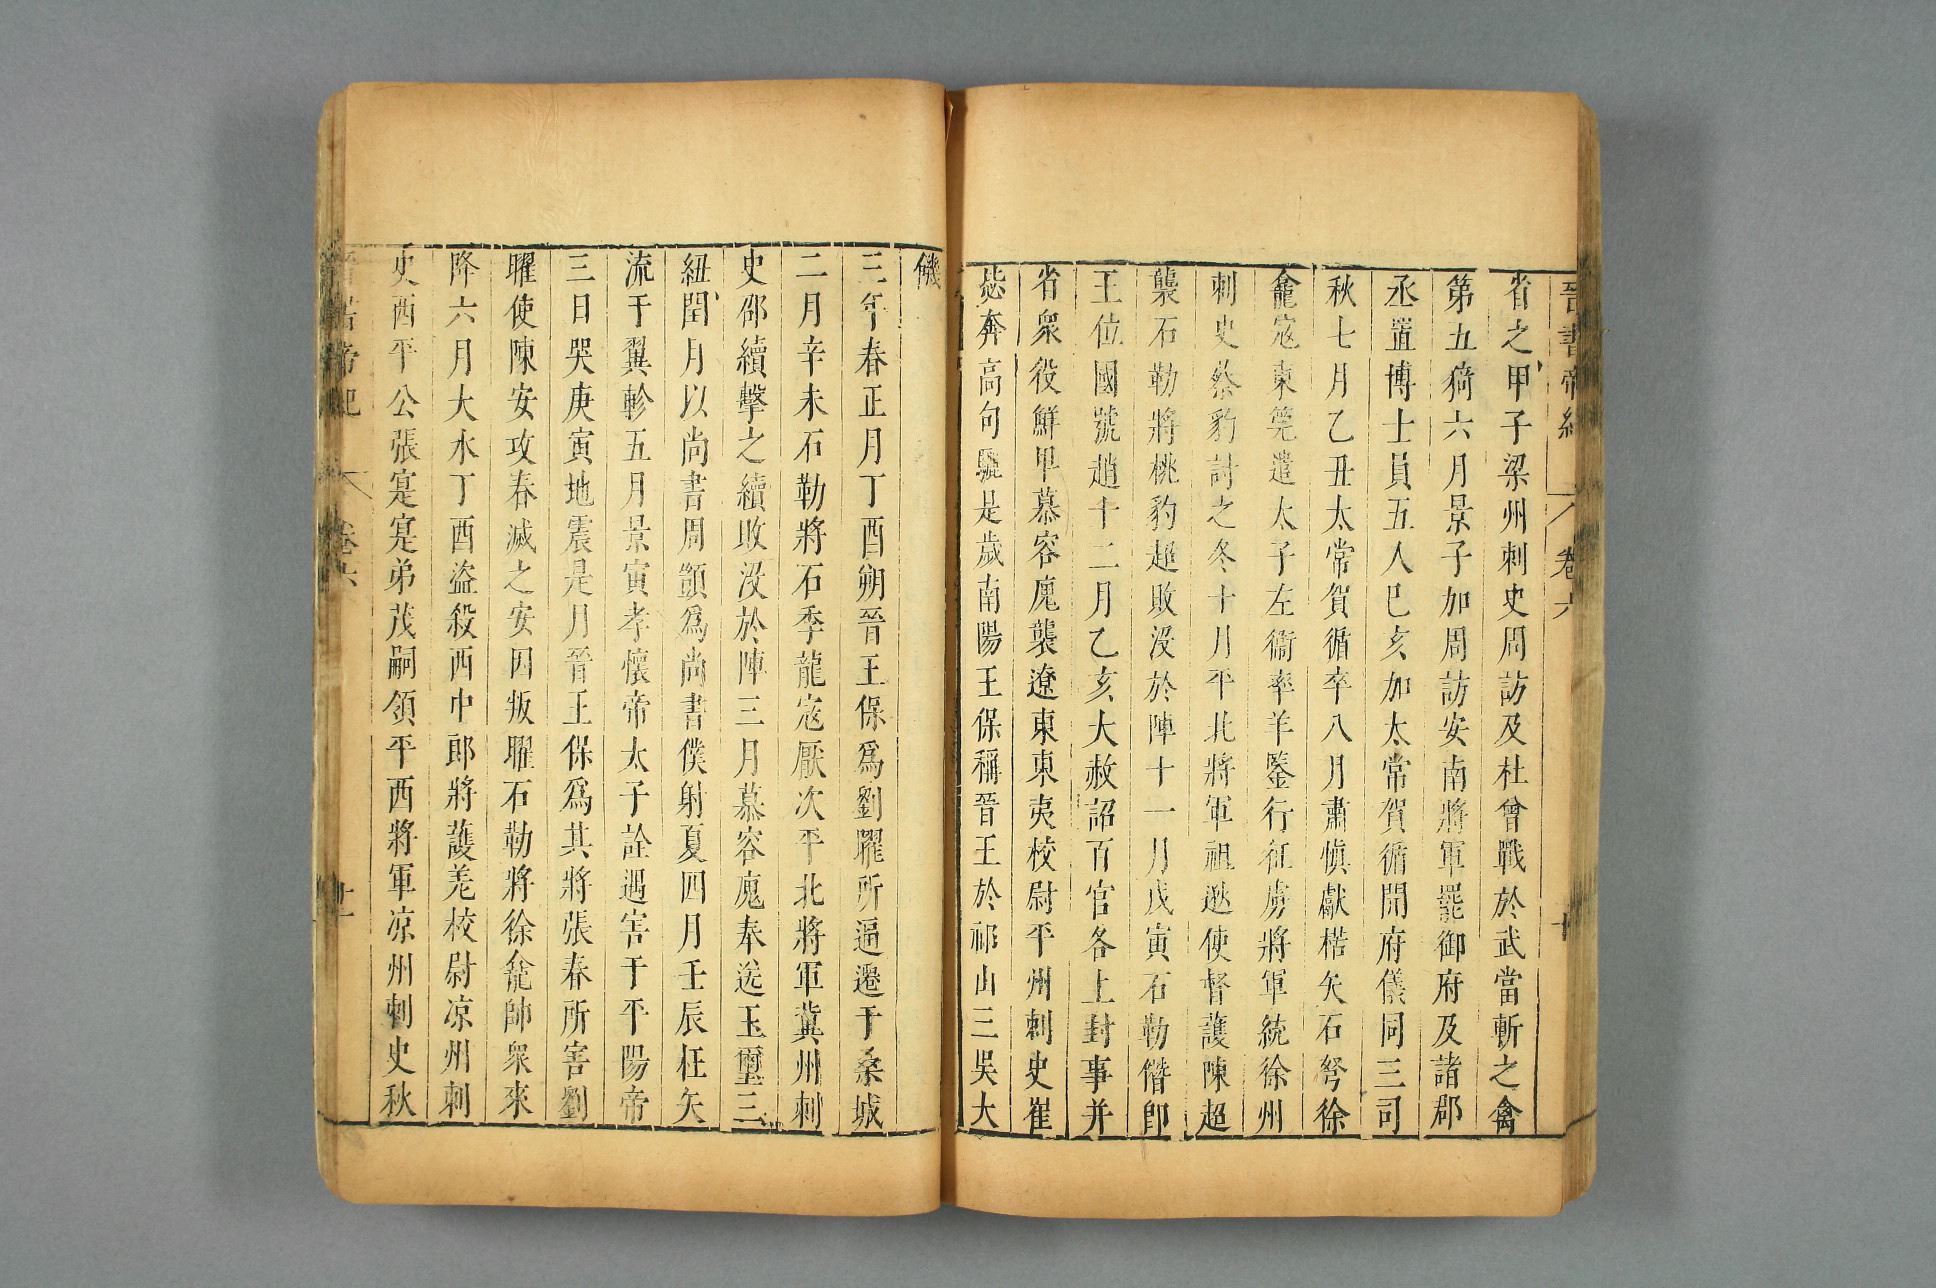 晉書帝紀 卷六 十
省之甲子梁州刺史周訪及杜曾戰於武當斬之禽
第五猗六月景子加周訪安南將軍罷御府及諸郡
丞置博士員五人巳亥加太常賀循開府儀同三司
秋七月乙丑太常賀循卒八月肅慎獻楛矢石弩徐
龕寇東莞遣太子左衞率羊鑒行征虜將軍統徐州
刺史蔡豹討之冬十月平北將軍祖逖使督護陳超
襲石勒將桃豹超敗沒於陣十一月戊寅石勒僭卽
王位國號趙十二月乙亥大赦詔百官各上封事并
省衆役鮮卑慕容廆襲遼東東夷校尉平州刺史崔
毖奔高句驪是歲南陽王保稱晉王於祁山三吳大
饑
三年春正月丁酉朔晉王保爲劉曜所逼遷于桑城
二月辛未石勒將石季龍寇厭次平北將軍冀州刺
史邵續擊之續敗沒於陣三月慕容廆奉送玉璽三
紐閏月以尚書周顗爲尚書僕射夏四月壬辰枉矢
流于翼軫五月景寅孝懷帝太子詮遇害于平陽帝
三日哭庚寅地震是月晉王保爲其將張春所害劉
曜使陳安攻春滅之安因叛曜石勒將徐龕帥衆來
降六月大水丁酉盜殺西中郎將護羌校尉凉州刺
史西平公張寔寔弟茂嗣領平西將軍凉州刺史秋
晉書帝紀 卷六 十一